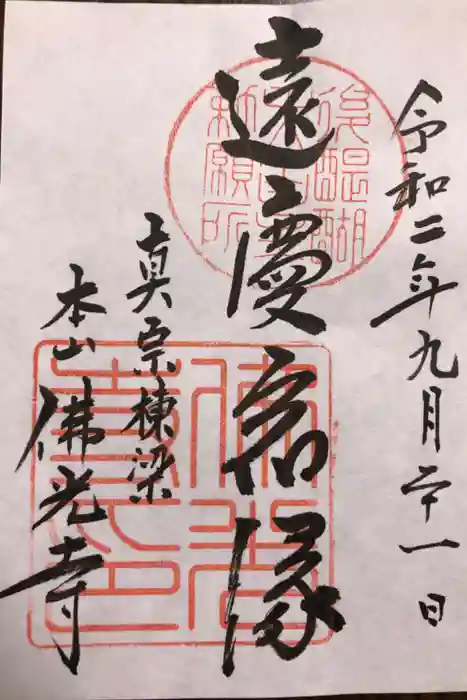 令和二年九月二十一日
後醍醐
勅願所
遠慶宿縁
真宗棟梁
本山佛光寺